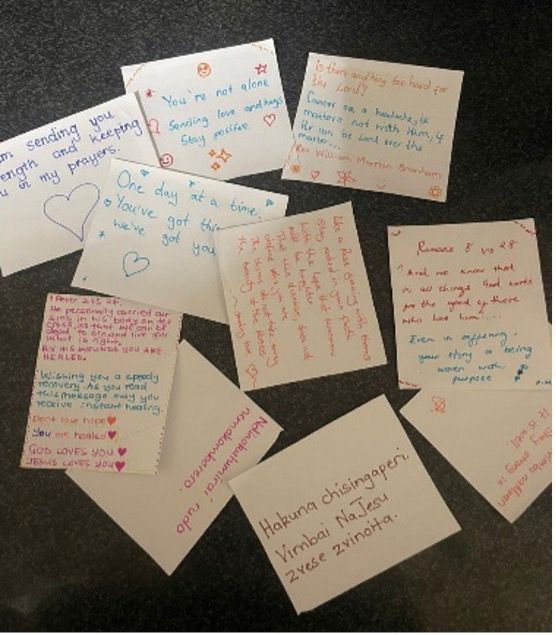 You're not alone
Sending love and hugs
Stay positive.
Is there anything too hard for
the Lord?
Cancer or a headache, it
matters not with Him, if
He can be Lord over the
matter...
Rev William Marrion Branham
sending you
and keeping
in my prayers.
One day at a time.
You've got this
we've got you
Like a Rose
stay rooted in your faith
with the hope that tomorrow
will be brighter
Romans 8 vs 28
"And we know that
in all things God works
for the good of those
who love him"...
Even in suffering
your story is being
woven with
purpose
1 Peter 2 vs 24
He personally carried our
sins in his body on the
cross, so that we can be
dead to sin and live for
what is right.
By HIS WOUNDS YOU ARE
HEALED.
Wishing you a speedy
recovery. As you read
this message may you
receive instant healing.
Dont lose hope
You are healed
GOD LOVES YOU
JESUS LOVES YOU
Ndinokutumirai rudo
nemakomborero.
Hakuna chisingaperi.
Vimbai NaJesu
zvese zvinoita.